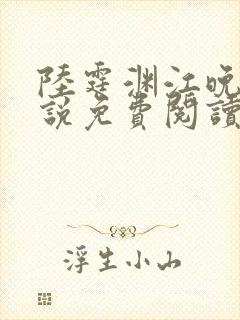 陸霆淵江晚
說免費閱讀
浮生小山